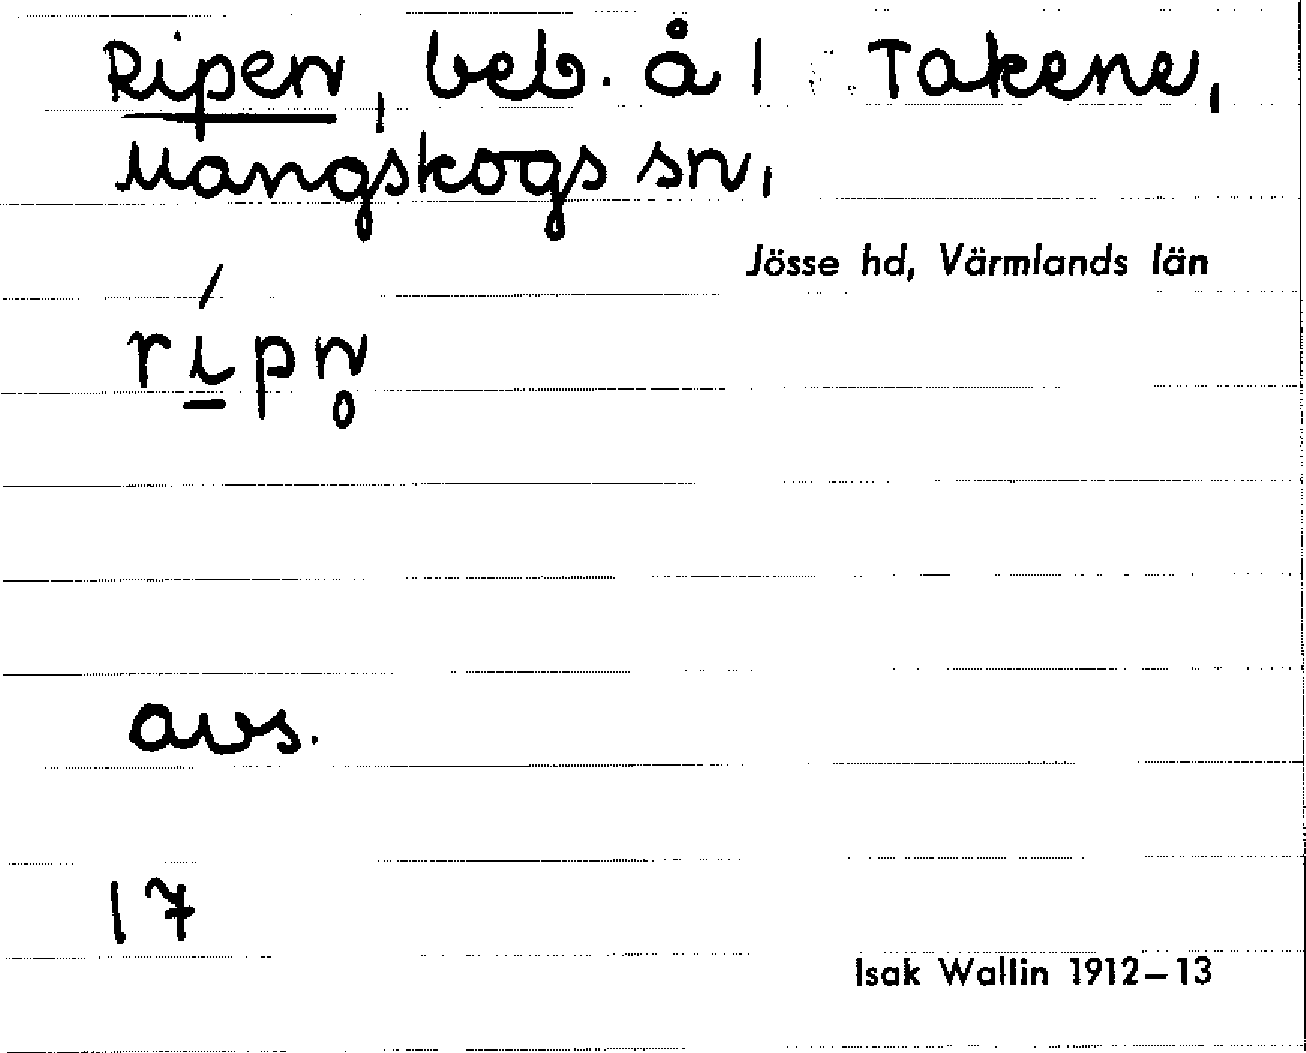 Ripen, beb. å 1 Takene,
Mangskogs sn,
Jösse hd, Värmlands län
ŕi̱pn̥
avs.
17
Isak Wallin 1912–13